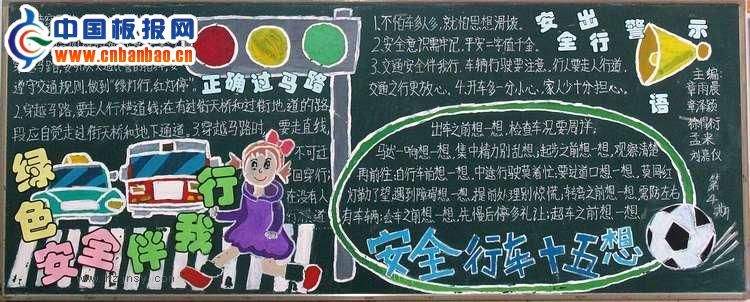 中国板报网
www.cnbanbao.cn
遵守交通规则,做到“绿灯行,红灯停”
2.穿越马路,要走人行横道线;在有过街天桥和过街地道的路
段应自觉走过街天桥和地下通道。3.穿越马路时,要走直线,
不可迂
回穿行;
在没有人
行横道
正确过马路
绿色
安全伴我行
1.不怕车多人多,就怕思想滑坡。
2.安全意识需牢记,平安二字值千金。
3.交通安全伴我行,车辆行驶要注意。行人要走人行道,
交通之行更放心。4.开车多一分小心,家人少十分担心。
安全
出行
警示语
主编:
章雨晨
章泽颖
孟来
刘嘉仪
第4期
出车之前想一想,检查车况要周详;
马达一响想一想,集中精力别乱想;起步之前想一想,观察清楚
再前往;自行车前想一想,中途行驶莫着忙;要过道口想一想,莫闯红
灯勤了望;遇到障碍想一想,提前处理别惊慌;转弯之前想一想,需防左右
有车辆;会车之前想一想,先慢后停多礼让;超车之前想一想
安全行车十五想